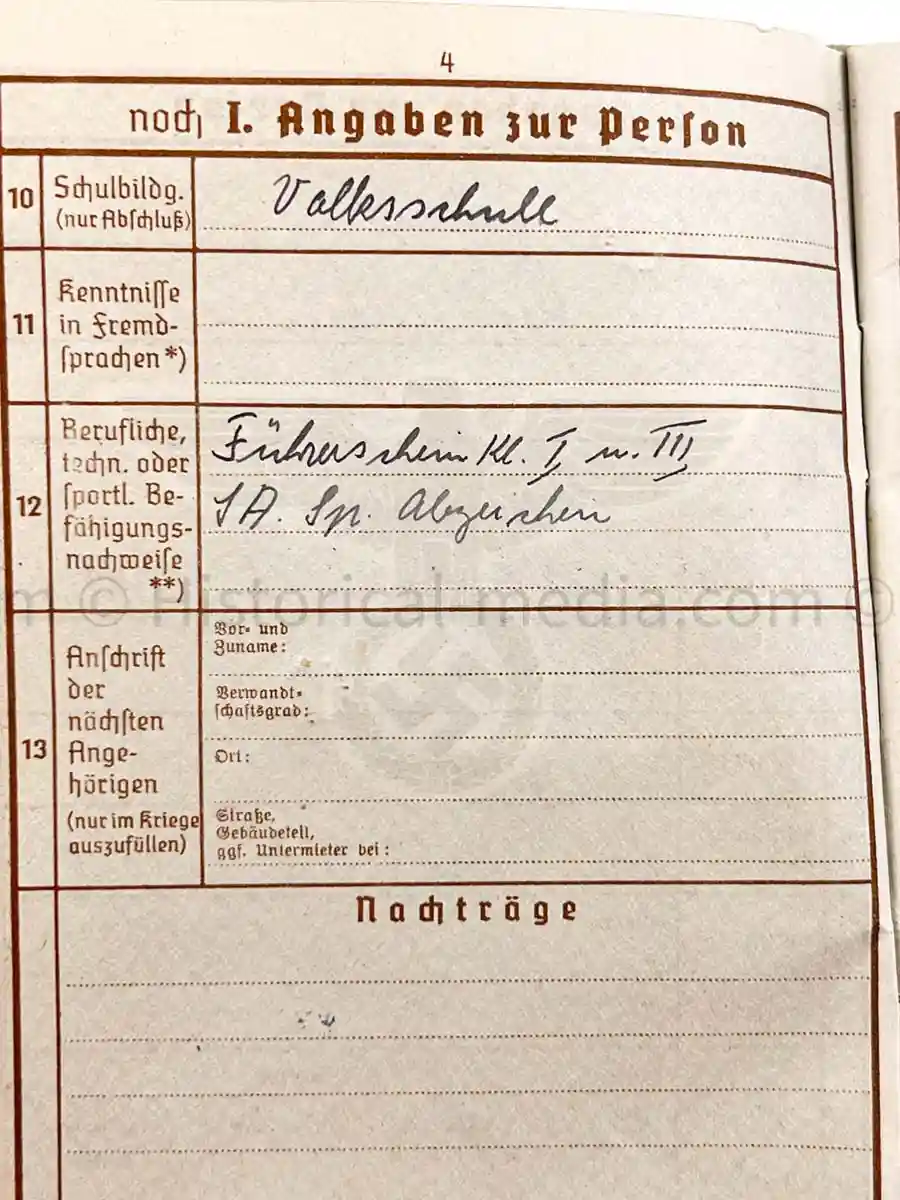 4
noch I. Angaben zur Person
10
Schulbildg.
(nur Abschluß)
Volksschule
11
Kenntnisse
in Fremd-
sprachen *)
12
Berufliche,
techn. oder
sportl. Be-
fähigungs-
nachweise
**)
Führerschein Kl. I u. III
SA. Sp. Abzeichen
m © Historical-media.com ©
13
Anschrift
der
nächsten
Ange-
hörigen
(nur im Kriege
auszufüllen)
Vor- und
Zuname:
Verwandt-
schaftsgrad:
Ort:
Straße,
Gebäudeteil,
ggf. Untermieter bei:
Nachträge